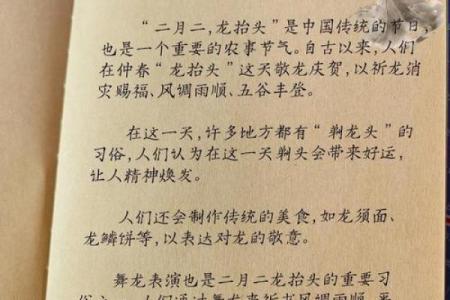 “二月二,龙抬头”是中国传统的节日,
也是一个重要的农事节气。自古以来,人们
在仲春“龙抬头”这天敬龙庆贺,以祈龙消
灾赐福、风调雨顺、五谷丰登。
在这一天,许多地方都有“剃龙头”的
习俗,人们认为在这一天剃头会带来好运,
让人精神焕发。
人们还会制作传统的美食,如龙须面、
龙鳞饼等,以表达对龙的敬意。
舞龙表演也是二月二龙抬头的重要习
俗之一,人们通过舞龙来祈求风调雨顺、五